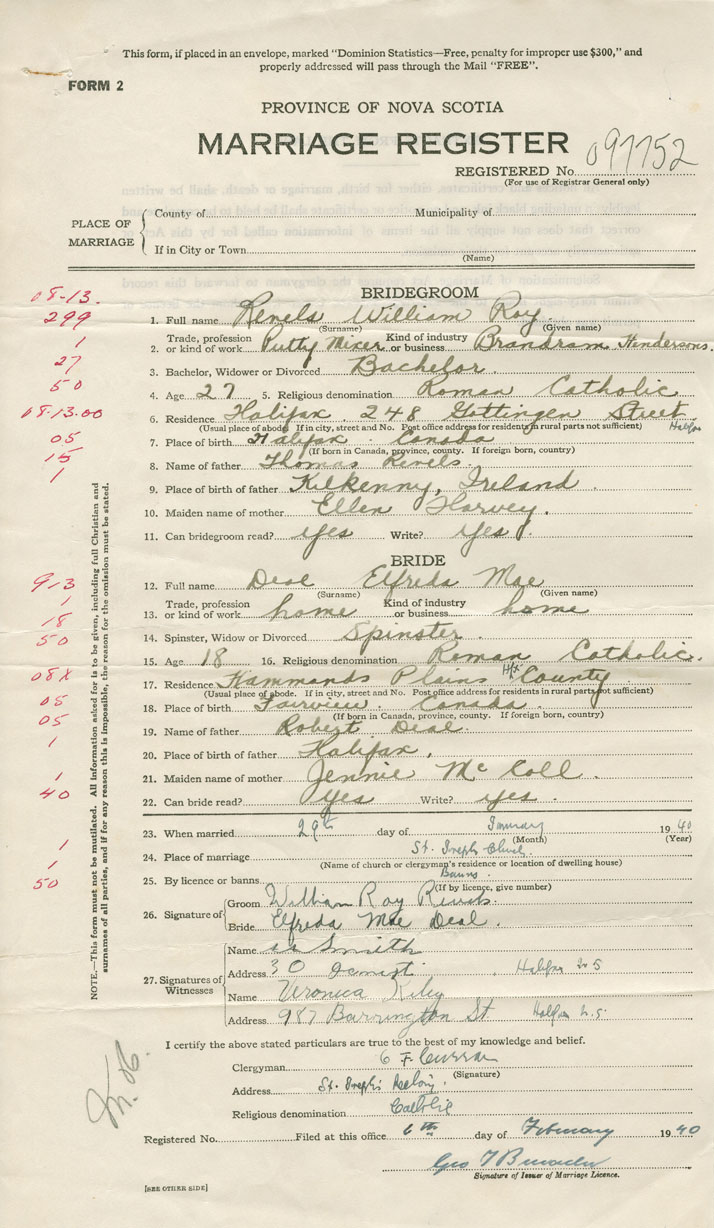 This form, if placed in an envelope, marked "Dominion Statistics—Free, penalty for improper use $300," and
properly addressed will pass through the Mail "FREE".
FORM 2
PROVINCE OF NOVA SCOTIA
MARRIAGE REGISTER
REGISTERED No. 097752
(For use of Registrar General only)
PLACE OF MARRIAGE
County of Municipality of
If in City or Town
(Name)
08-13.
BRIDEGROOM
299
1. Full name Revels William Roy
(Surname) (Given name)
1
2. Trade, profession or kind of work Putty Mixer Kind of industry or business Brandram Hendersons.
27
3. Bachelor, Widower or Divorced Bachelor.
50
4. Age 27 5. Religious denomination Roman Catholic
08.13.00
6. Residence Halifax 248 Gottingen Street
(Usual place of abode. If in city, street and No. Post office address for residents in rural parts not sufficient) Halifax
05
7. Place of birth Halifax. Canada
(If born in Canada, province, county. If foreign born, country)
15
8. Name of father Thomas Revels.
1
9. Place of birth of father Kilkenny, Ireland.
10. Maiden name of mother Ellen Harvey.
11. Can bridegroom read? yes Write? yes
BRIDE
913
12. Full name Deal Elfreda Mae
(Surname) (Given name)
1
13. Trade, profession or kind of work home Kind of industry or business home
18
50
14. Spinster, Widow or Divorced Spinster.
15. Age 18 16. Religious denomination Roman Catholic.
08X
17. Residence Hammonds Plains Hfx County
(Usual place of abode. If in city, street and No. Post office address for residents in rural parts not sufficient)
05
18. Place of birth Fairview. Canada.
(If born in Canada, province, county. If foreign born, country)
05
19. Name of father Robert Deal.
1
20. Place of birth of father Halifax,
1
21. Maiden name of mother Jennie McColl.
40
22. Can bride read? yes Write? yes.
23. When married 29th day of January 1940
(Month) (Year)
1
24. Place of marriage St. Joseph's Church
(Name of church or clergyman's residence or location of dwelling house)
1
25. By licence or banns Banns.
(If by licence, give number)
50
26. Signature of
Groom William Roy Revels.
Bride Elfreda Mae Deal.
27. Signatures of Witnesses
Name Smith
Address 30 Halifax N.S
Name Veronica Kiley
Address 987 Barrington St Halifax N.S.
I certify the above stated particulars are true to the best of my knowledge and belief.
Clergyman F. Curran
(Signature)
Address St. Joseph's
Religious denomination Catholic
Registered No. Filed at this office 6th day of February 1940
Geo T
Signature of Issuer of Marriage Licence.
[SEE OTHER SIDE]
NOTE.—This form must not be mutilated. All information asked for is to be given, including full Christian and
surnames of all parties, and if for any reason this is impossible, the reason for the omission must be stated.